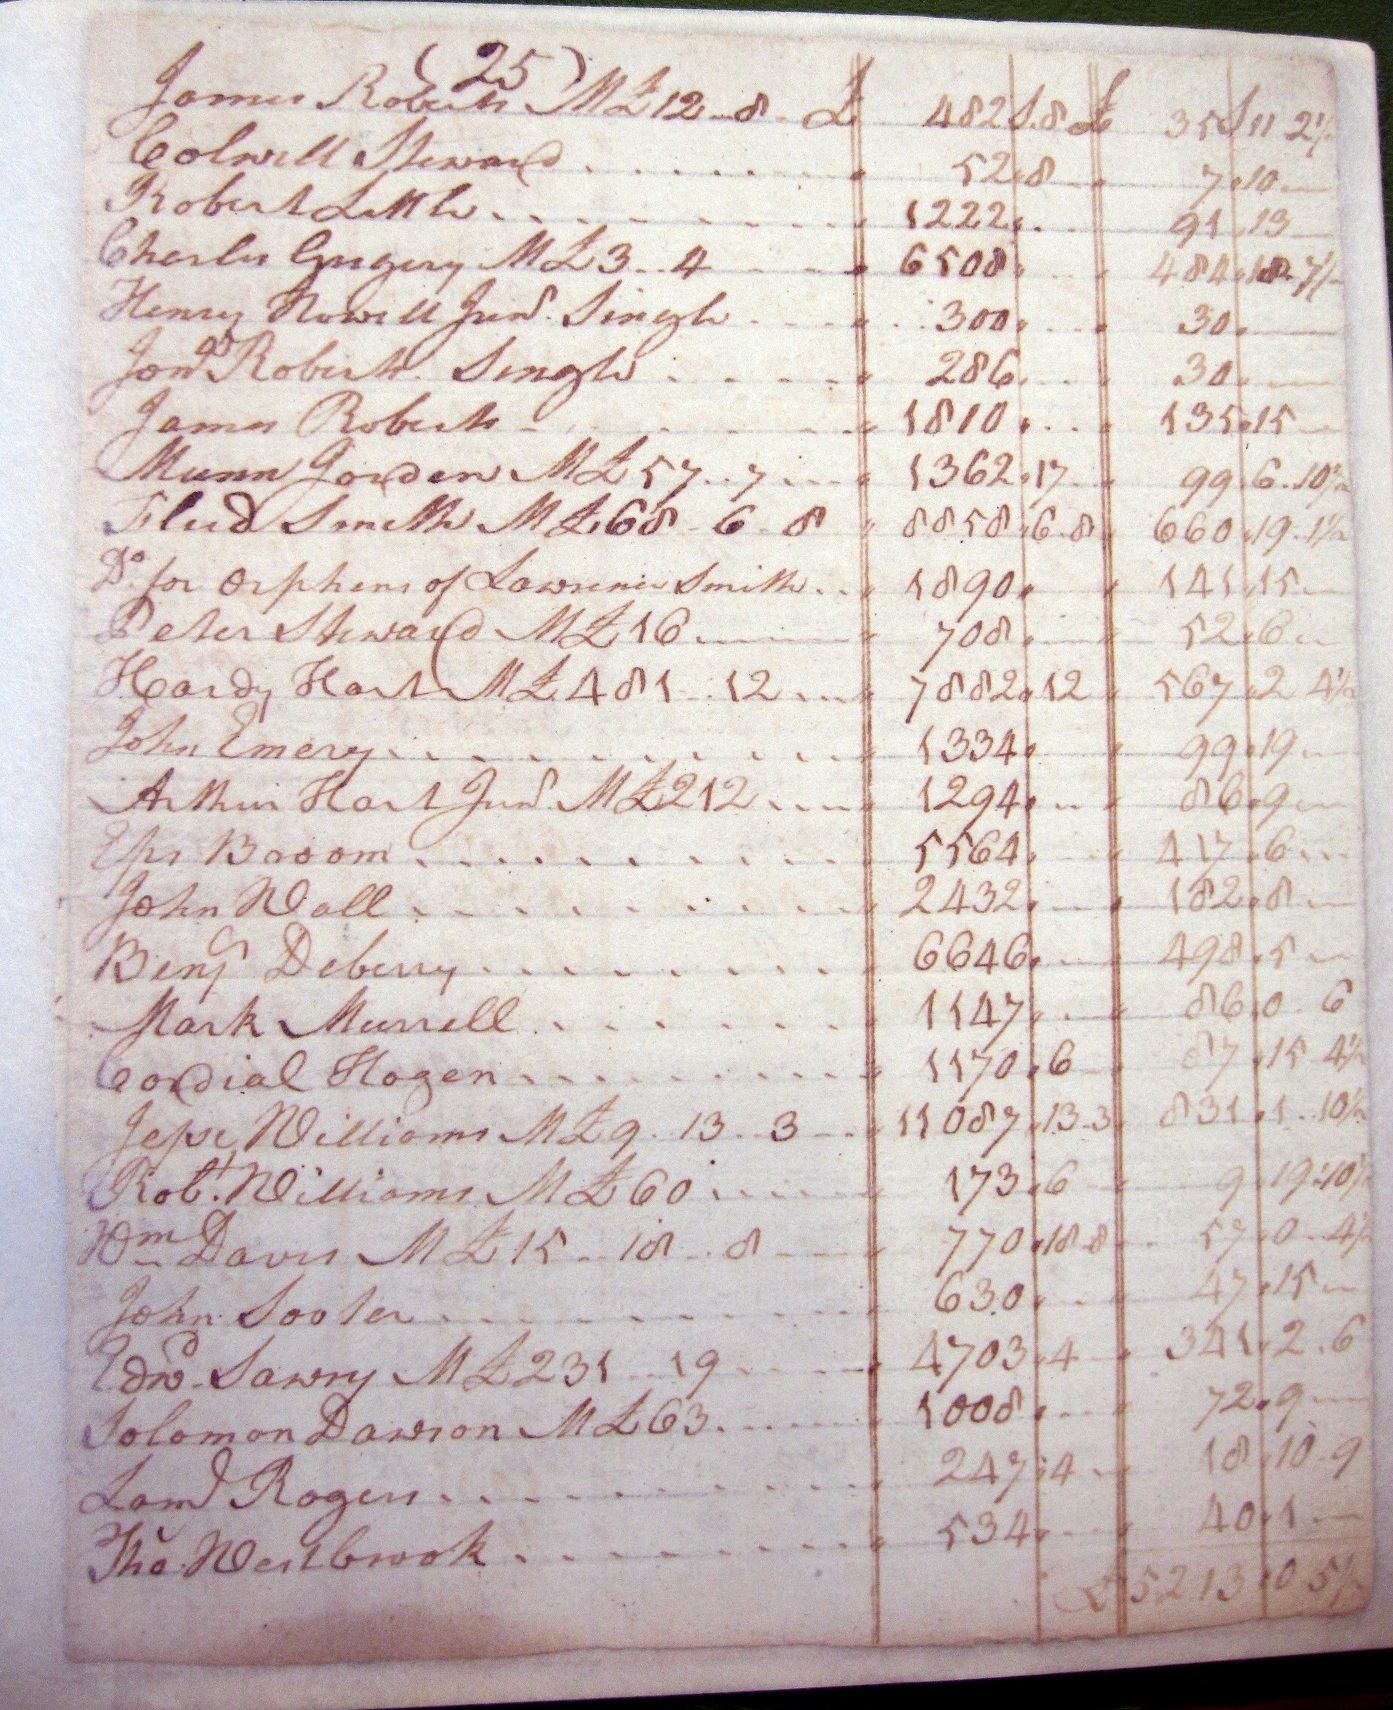 (25)
James Roberts M £12..8. £ 482 S.8 £ 35 S 11 2½
Colwell Steward 52.8 7.10
Robert Little 1222 91.13
Charles Gregory M £3..4 6508 484.18.7½
Henry Nowell Junr. Single 300 30
Jona Roberts. Single 286 30
James Roberts 1810 135.15
Munn Gorden M £57..7 1362.17 99.6.10½
Flud Smith M £68-6-8 8858.6.8 660.19.1½
Do. for Orphens of Lawrence Smith 1890 141.15
Peter Steward M £16 708 52.6
Hardy Hart M £481..12 7882.12 567.2 4½
John Emery 1334 99.19
Arthur Hart Junr. M £212 1294 86.9
Eps Booom 5564 417.6
John Wall 2432 182.8
Benj Deberry 6646 498.5
Mark Murrell 1147 86.0 6
Cordial Hogen 1170.6 87.15 4½
Jesse Williams M £9.13..3 11087.13.3 831.1..10½
Robt. Williams M £60 173.6 9.19.10½
Wm Davis M £15..18..8 770.18.8 57.0..4½
John Sooter 630 47.15
Edwd Sawry M £231..19 4703.4 341.2.6
Solomon Dawson M £63 1008 72.9
Lamd Rogers 247.4 18.10.9
Tho. Westbrook 534 40.1
£5213.0 5½